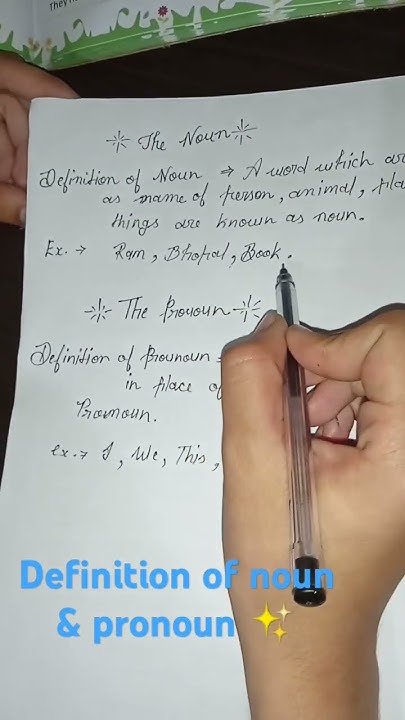 they
The Noun
Definition of Noun ⇒ A word which ar
as name of person, animal, pla
things are known as noun.
Ex. → Ram, Bhopal, Book.
The Pronoun
Definition of Prounoun =
in place of
Pronoun.
ex. → I, We, This,
Definition of noun
& pronoun ✨